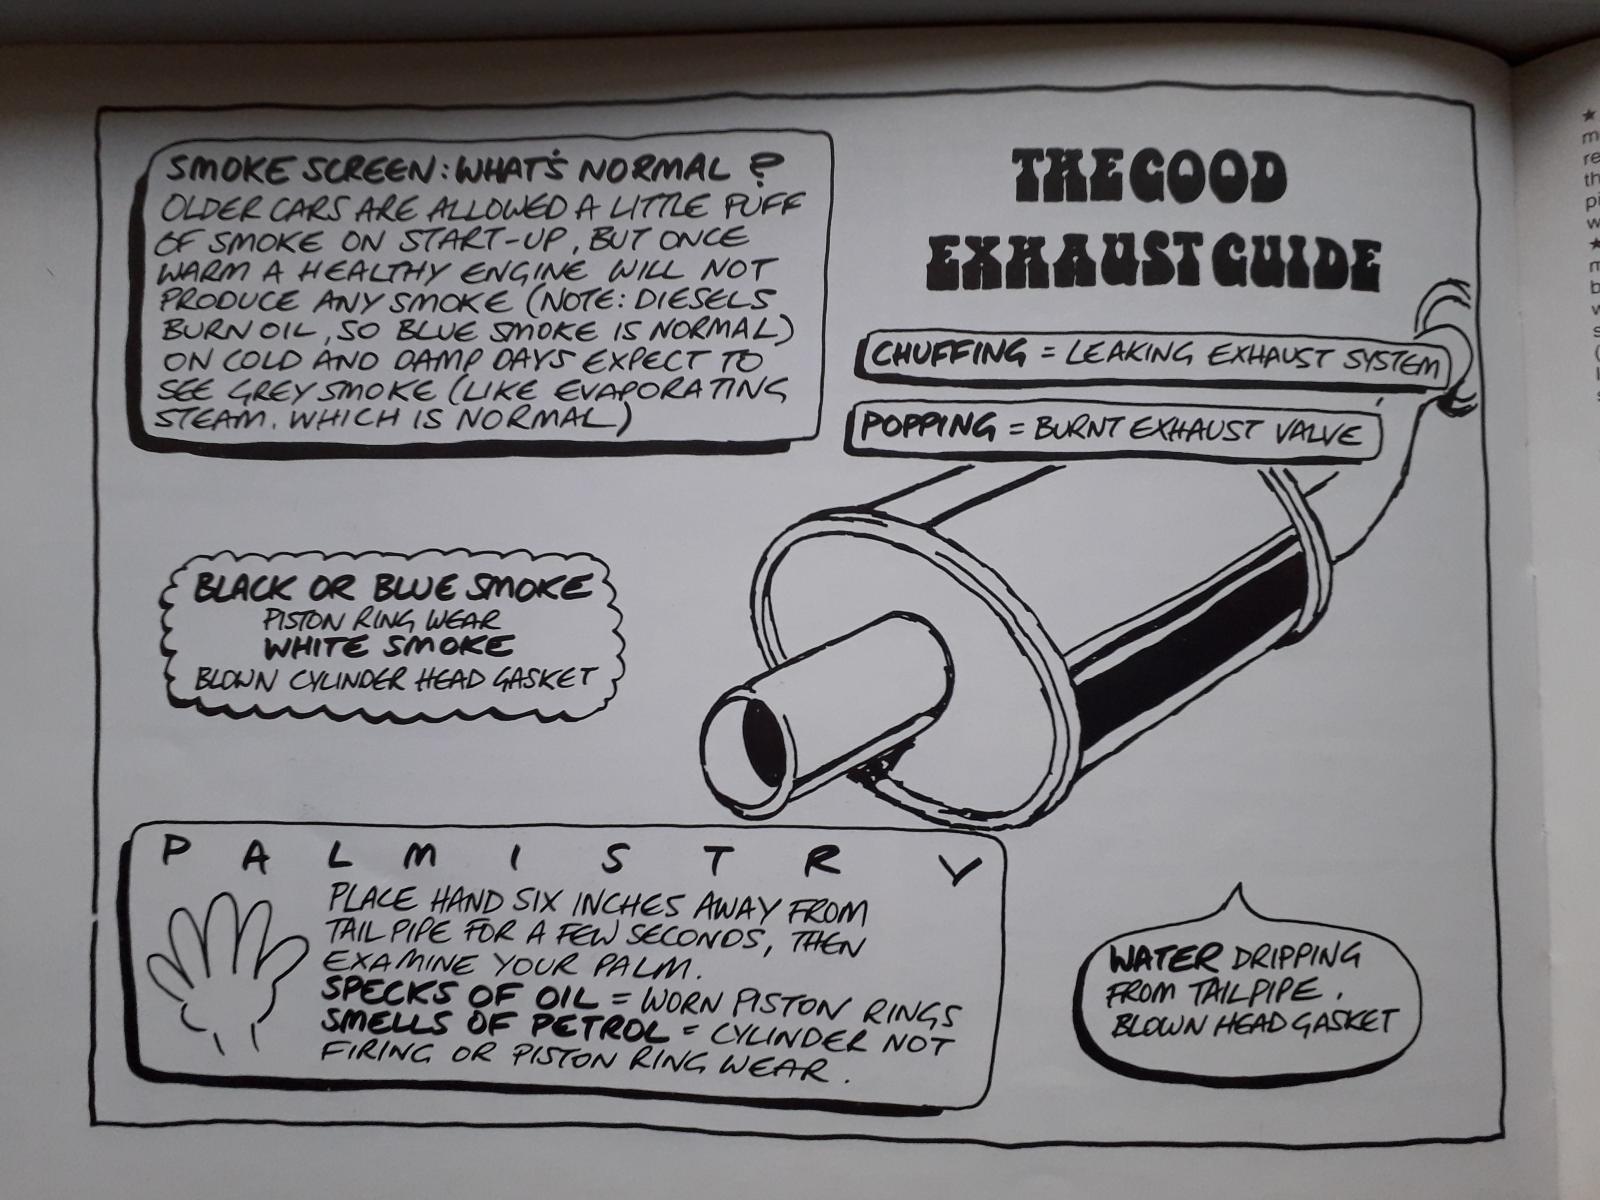 SMOKE SCREEN: WHAT'S NORMAL ?
OLDER CARS ARE ALLOWED A LITTLE PUFF
OF SMOKE ON START-UP, BUT ONCE
WARM A HEALTHY ENGINE WILL NOT
PRODUCE ANY SMOKE (NOTE: DIESELS
BURN OIL, SO BLUE SMOKE IS NORMAL)
ON COLD AND DAMP DAYS EXPECT TO
SEE GREY SMOKE (LIKE EVAPORATING
STEAM. WHICH IS NORMAL)
THE GOOD
EXHAUST GUIDE
CHUFFING = LEAKING EXHAUST SYSTEM
POPPING = BURNT EXHAUST VALVE
BLACK OR BLUE SMOKE
PISTON RING WEAR
WHITE SMOKE
BLOWN CYLINDER HEAD GASKET
PALMISTRY
PLACE HAND SIX INCHES AWAY FROM
TAILPIPE FOR A FEW SECONDS, THEN
EXAMINE YOUR PALM.
SPECKS OF OIL = WORN PISTON RINGS
SMELLS OF PETROL = CYLINDER NOT
FIRING OR PISTON RING WEAR.
WATER DRIPPING
FROM TAILPIPE.
BLOWN HEAD GASKET